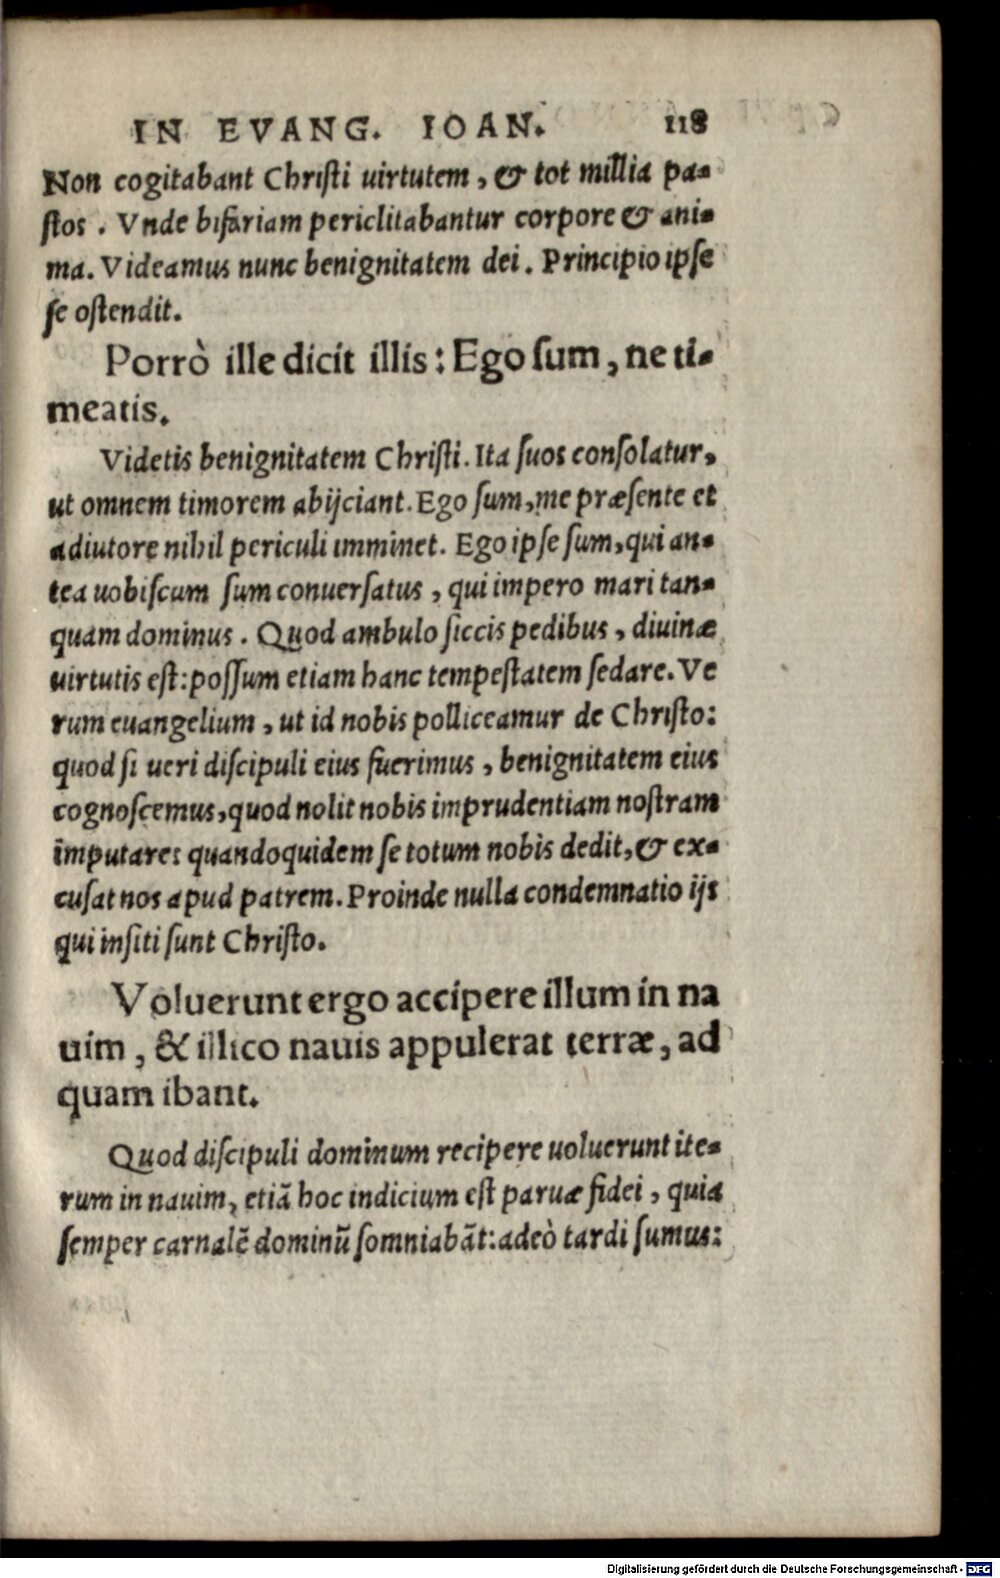 IN EVANG. IOAN. 118
Non cogitabant Christi uirtutem, & tot millia pa-
stos. Vnde bifariam periclitabantur corpore & ani-
ma. Videamus nunc benignitatem dei. Principio ipse
se ostendit.
Porrò ille dicit illis: Ego sum, ne ti-
meatis.
Videtis benignitatem Christi. Ita suos consolatur,
ut omnem timorem abijciant. Ego sum, me præsente et
adiutore nihil periculi imminet. Ego ipse sum, qui an-
tea uobiscum sum conuersatus, qui impero mari tan-
quam dominus. Quod ambulo siccis pedibus, diuinæ
uirtutis est: possum etiam hanc tempestatem sedare. Ve
rum euangelium, ut id nobis polliceamur de Christo:
quod si ueri discipuli eius fuerimus, benignitatem eius
cognoscemus, quod nolit nobis imprudentiam nostram
imputare: quandoquidem se totum nobis dedit, & ex-
cusat nos apud patrem. Proinde nulla condemnatio ijs
qui insiti sunt Christo.
Voluerunt ergo accipere illum in na
uim, & illico nauis appulerat terræ, ad
quam ibant.
Quod discipuli dominum recipere uoluerunt ite-
rum in nauim, etiã hoc indicium est paruæ fidei, quia
semper carnalẽ dominũ somniabãt: adeò tardi sumus:
Digitalisierung gefördert durch die Deutsche Forschungsgemeinschaft - DFG